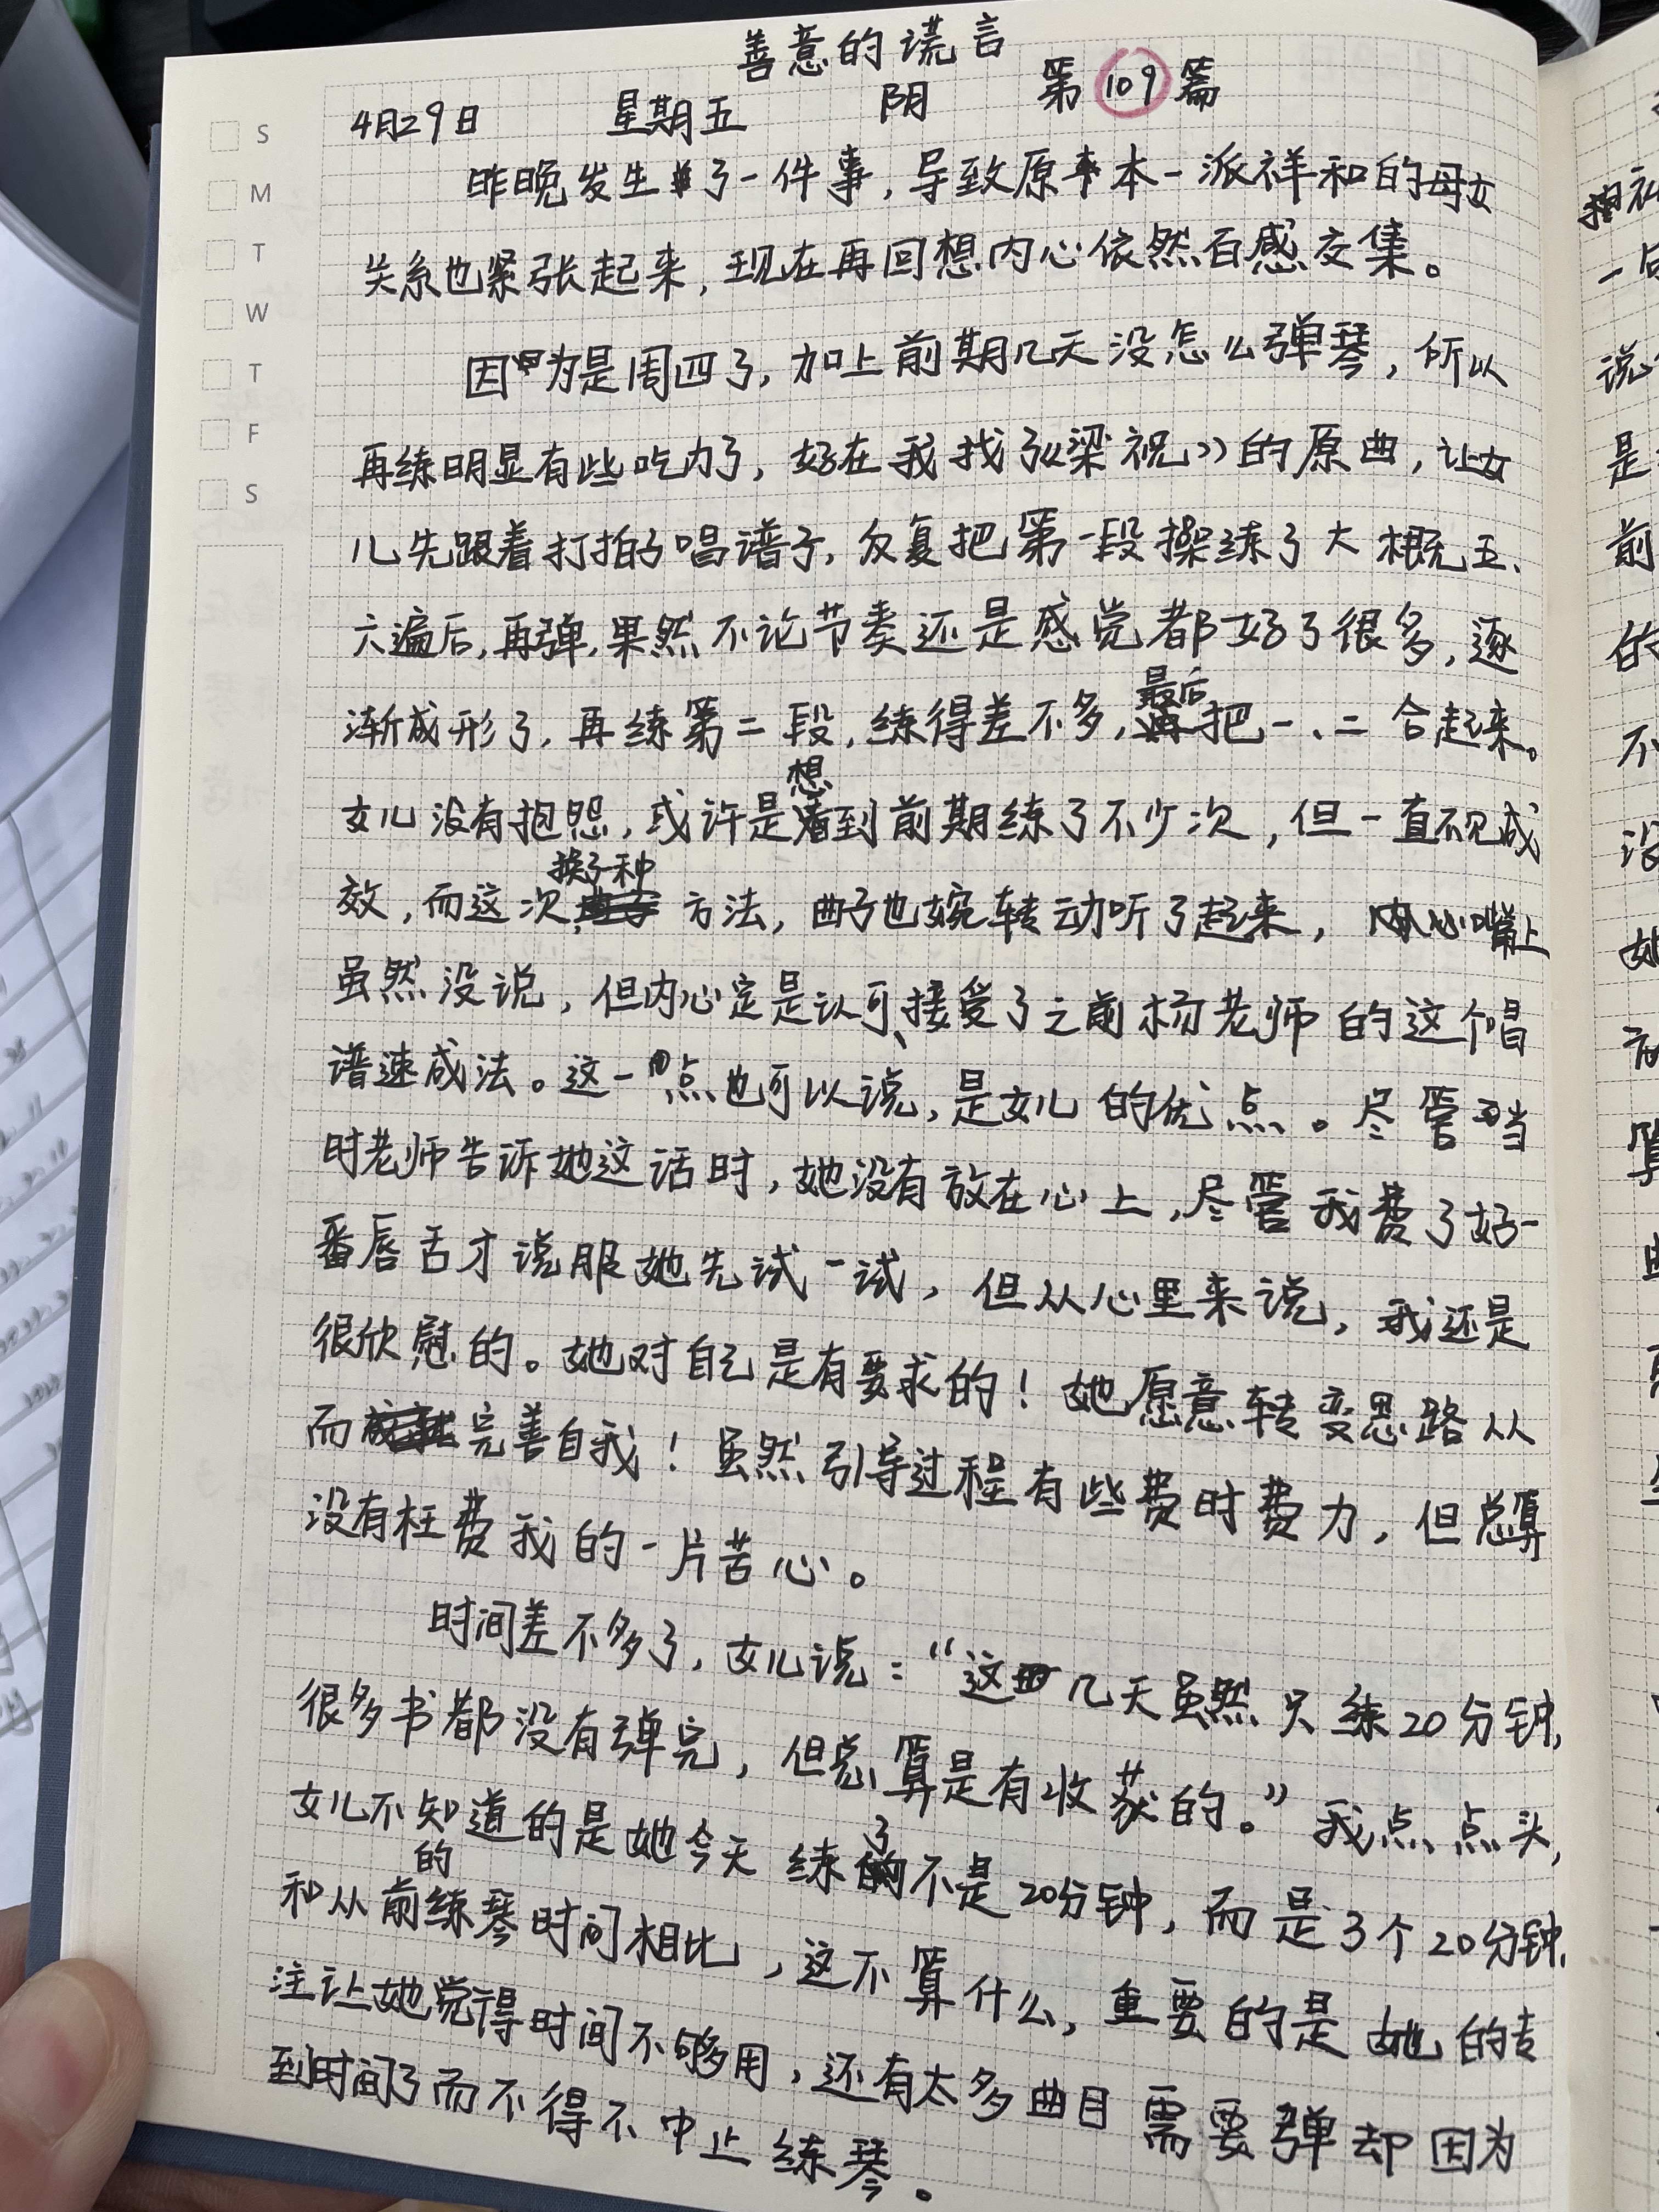 善意的谎言
4月29日 星期五 阴 第109篇
S
M
T
W
T
F
S
昨晚发生了一件事，导致原本一派祥和的母女
关系也紧张起来，现在再回想内心依然百感交集。
因为是周四了，加上前期几天没怎么弹琴，所以
再练明显有些吃力了，好在我找了《梁祝》的原曲，让女
儿先跟着打拍子唱谱子，反复把第一段操练了大概五、
六遍后，再弹，果然不论节奏还是感觉都好了很多，逐
渐成形了，再练第二段，练得差不多，最后把一、二合起来。
女儿没有抱怨，或许是想到前期练了不少次，但一直不见成
效，而这次换了种方法，曲子也婉转动听了起来，嘴上
虽然没说，但内心定是认可、接受了之前杨老师的这个唱
谱速成法。这一点也可以说，是女儿的优点。尽管当
时老师告诉她这话时，她没有放在心上，尽管我费了好一
番唇舌才说服她先试一试，但从心里来说，我还是
很欣慰的。她对自己是有要求的！她愿意转变思路从
而完善自我！虽然引导过程有些费时费力，但总算
没有枉费我的一片苦心。
时间差不多了，女儿说：“这几天虽然只练20分钟，
很多书都没有弹完，但总算是有收获的。”我点点头，
女儿不知道的是她今天练了不是20分钟，而是3个20分钟，
和从前的练琴时间相比，这不算什么，重要的是她的专
注让她觉得时间不够用，还有太多曲目需要弹却因为
到时间了而不得不中止练琴。